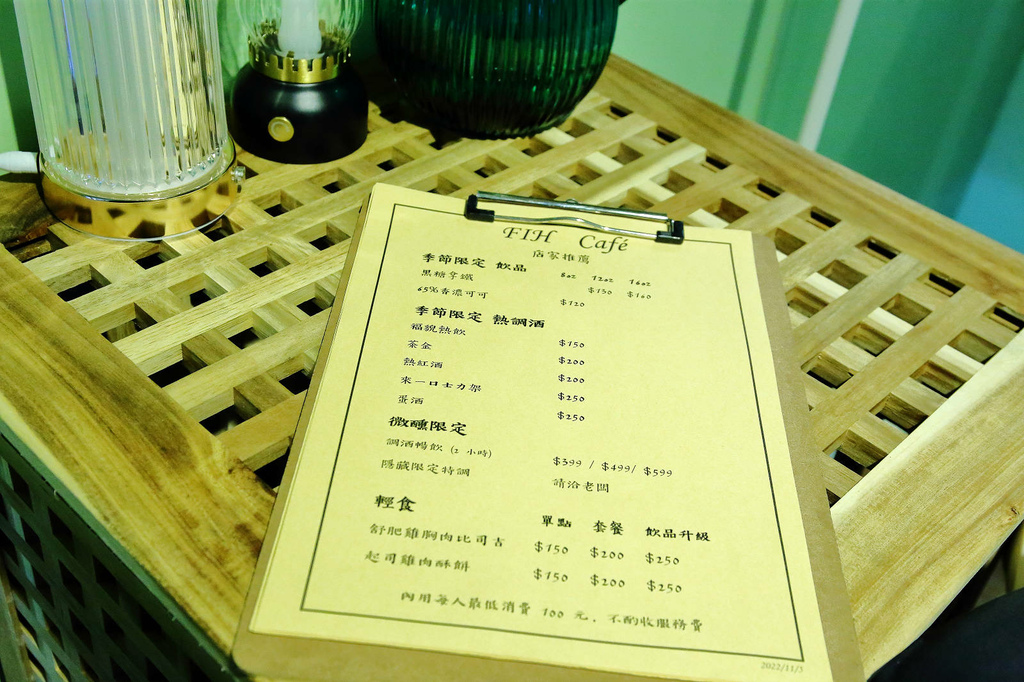 FIH Café
店家推薦
季節限定 飲品 8oz 12oz 16oz
黑糖拿鐵 $130 $160
65%香濃可可 $120
季節限定 熱調酒
福貌熱飲 $150
茶金 $200
熱紅酒 $200
來一口士力架 $250
蛋酒 $250
微醺限定
調酒暢飲 (2 小時) $399 / $499/ $599
隱藏限定特調 請洽老闆
輕食 單點 套餐 飲品升級
舒肥雞胸肉比司吉 $150 $200 $250
起司雞肉酥餅 $150 $200 $250
內用每人最低消費 100 元，不酌收服務費
2022/11/5